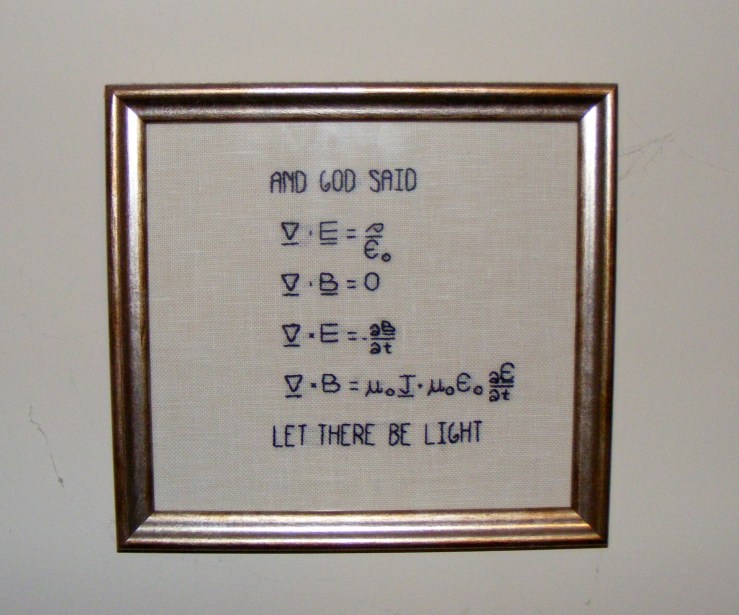 AND GOD SAID
∇ · E = ρ/ε₀
∇ · B = 0
∇ × E = -∂B/∂t
∇ × B = μ₀J · μ₀ε₀ ∂E/∂t
LET THERE BE LIGHT